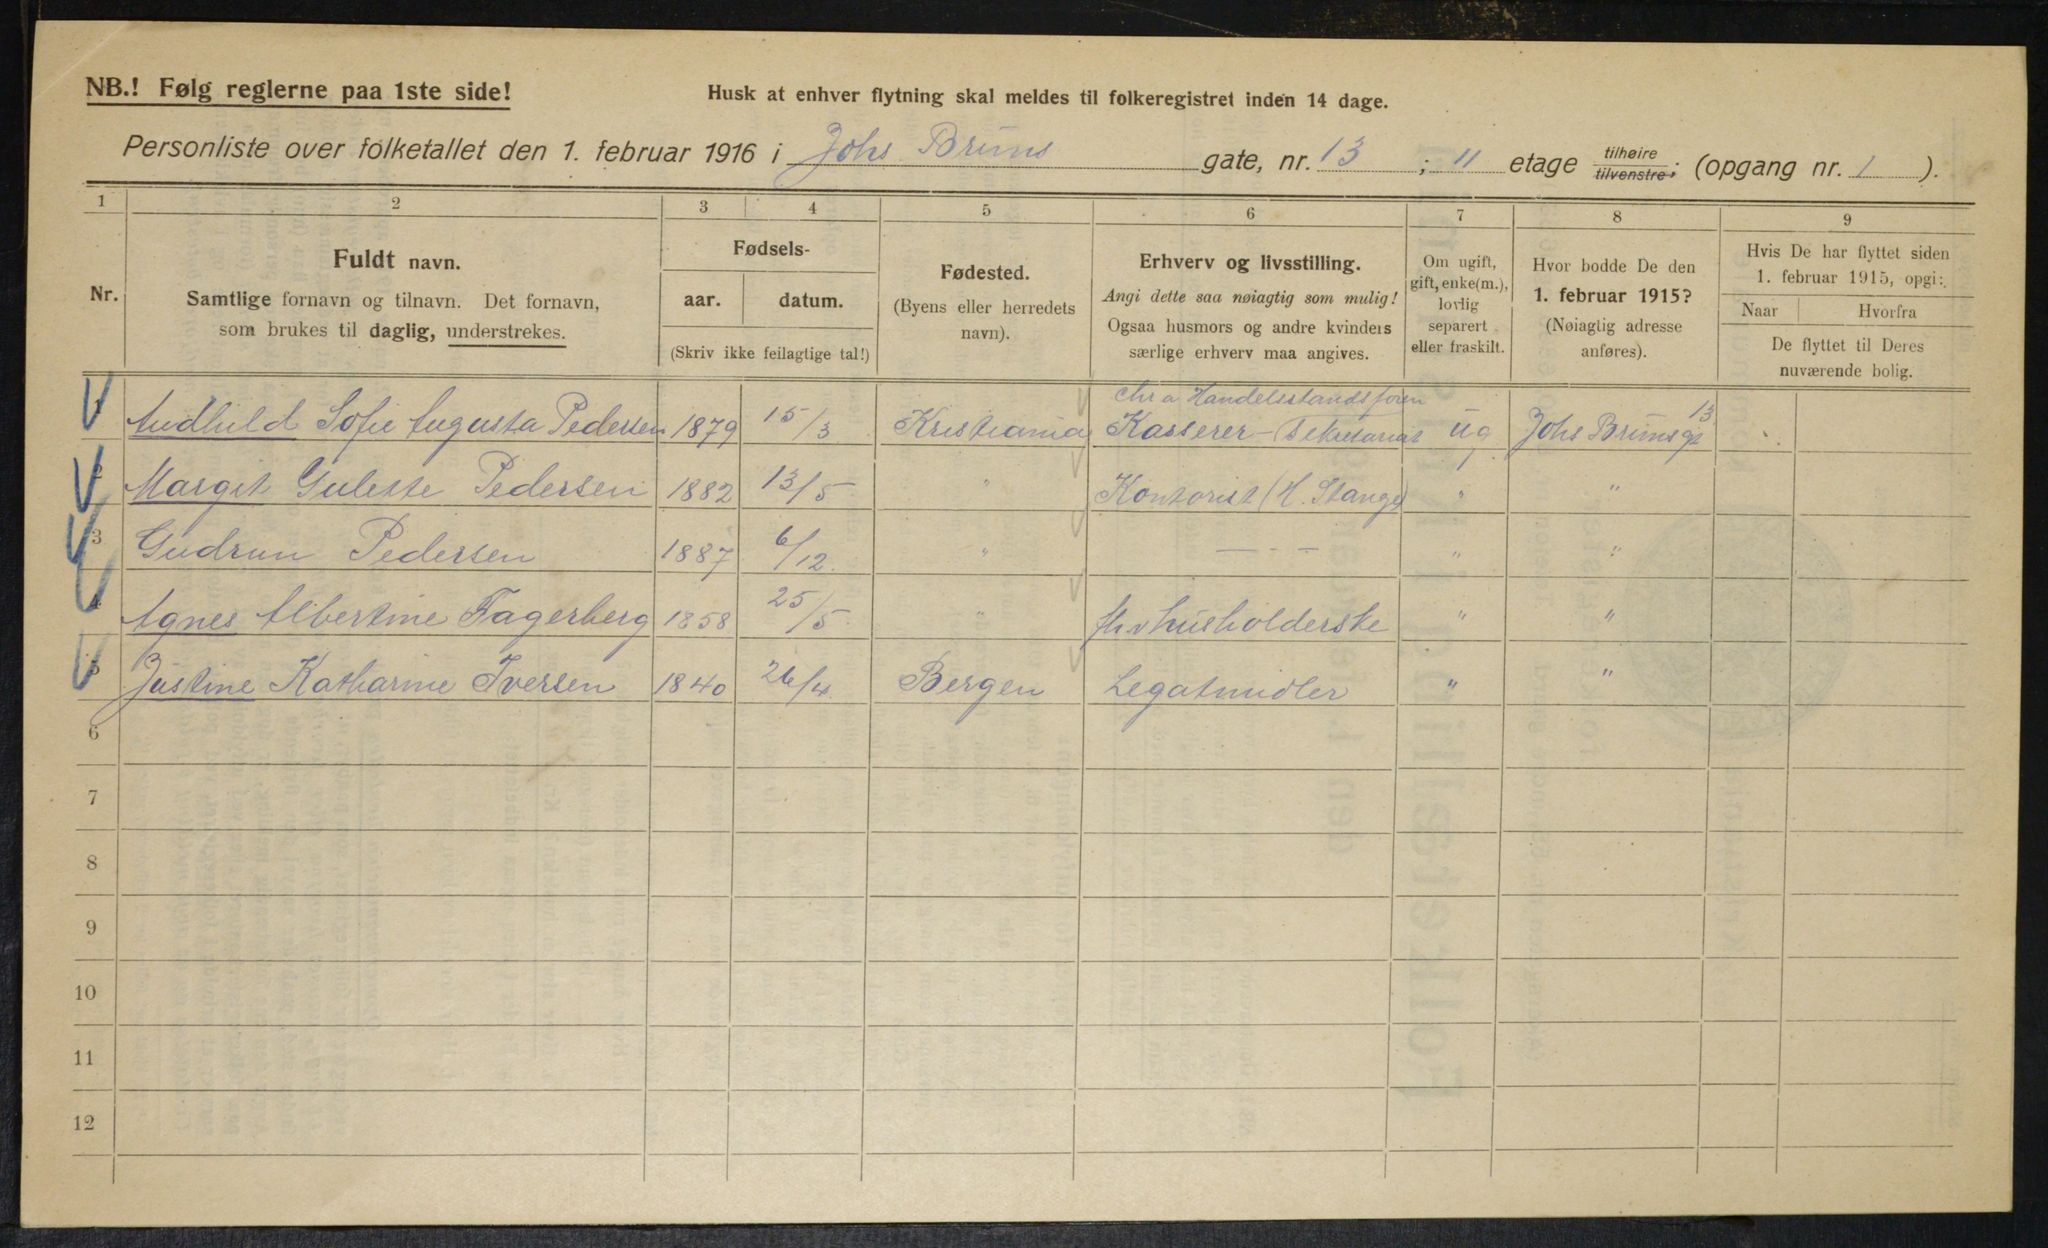 NB.! Følg reglerne paa 1ste side!
Husk at enhver flytning skal meldes til folkeregistret inden 14 dage.
Personliste over folketallet den 1. februar 1916 i Johs Bruns gate, nr. 13 ; 11 etage tilhøire tilvenstre; (opgang nr. 1 ).
1 2 3 4 5 6 7 8 9
Nr.
Fuldt navn.
Samtlige fornavn og tilnavn. Det fornavn,
som brukes til daglig, understrekes.
Fødsels-
aar. datum.
(Skriv ikke feilagtige tal!)
Fødested.
(Byens eller herredets
navn).
Erhverv og livsstilling.
Angi dette saa nøiagtig som mulig!
Ogsaa husmors og andre kvinders
særlige erhverv maa angives.
Om ugift,
gift, enke(m.),
lovlig
separert
eller fraskilt.
Hvor bodde De den
1. februar 1915?
(Nøiagtig adresse
anføres).
Hvis De har flyttet siden
1. februar 1915, opgi:
Naar Hvorfra
De flyttet til Deres
nuværende bolig.
Chr a Handelsstandsforen
1 Audhild Sofie Augusta Pedersen 1879 15/3 Kristiania Kasserer - Sekretariat ug Johs Brunsgt 13
2 Margit Gulette Pedersen 1882 13/5 " Kontorist (H. Stange) " "
3 Gudrun Pedersen 1887 6/12 " — - – " "
4 Agnes Albertine Fagerberg 1858 25/5 " fhv husholderske " "
5 Justine Katharine Iversen 1840 26/4 Bergen Legatmidler " "
6
7
8
9
10
11
12